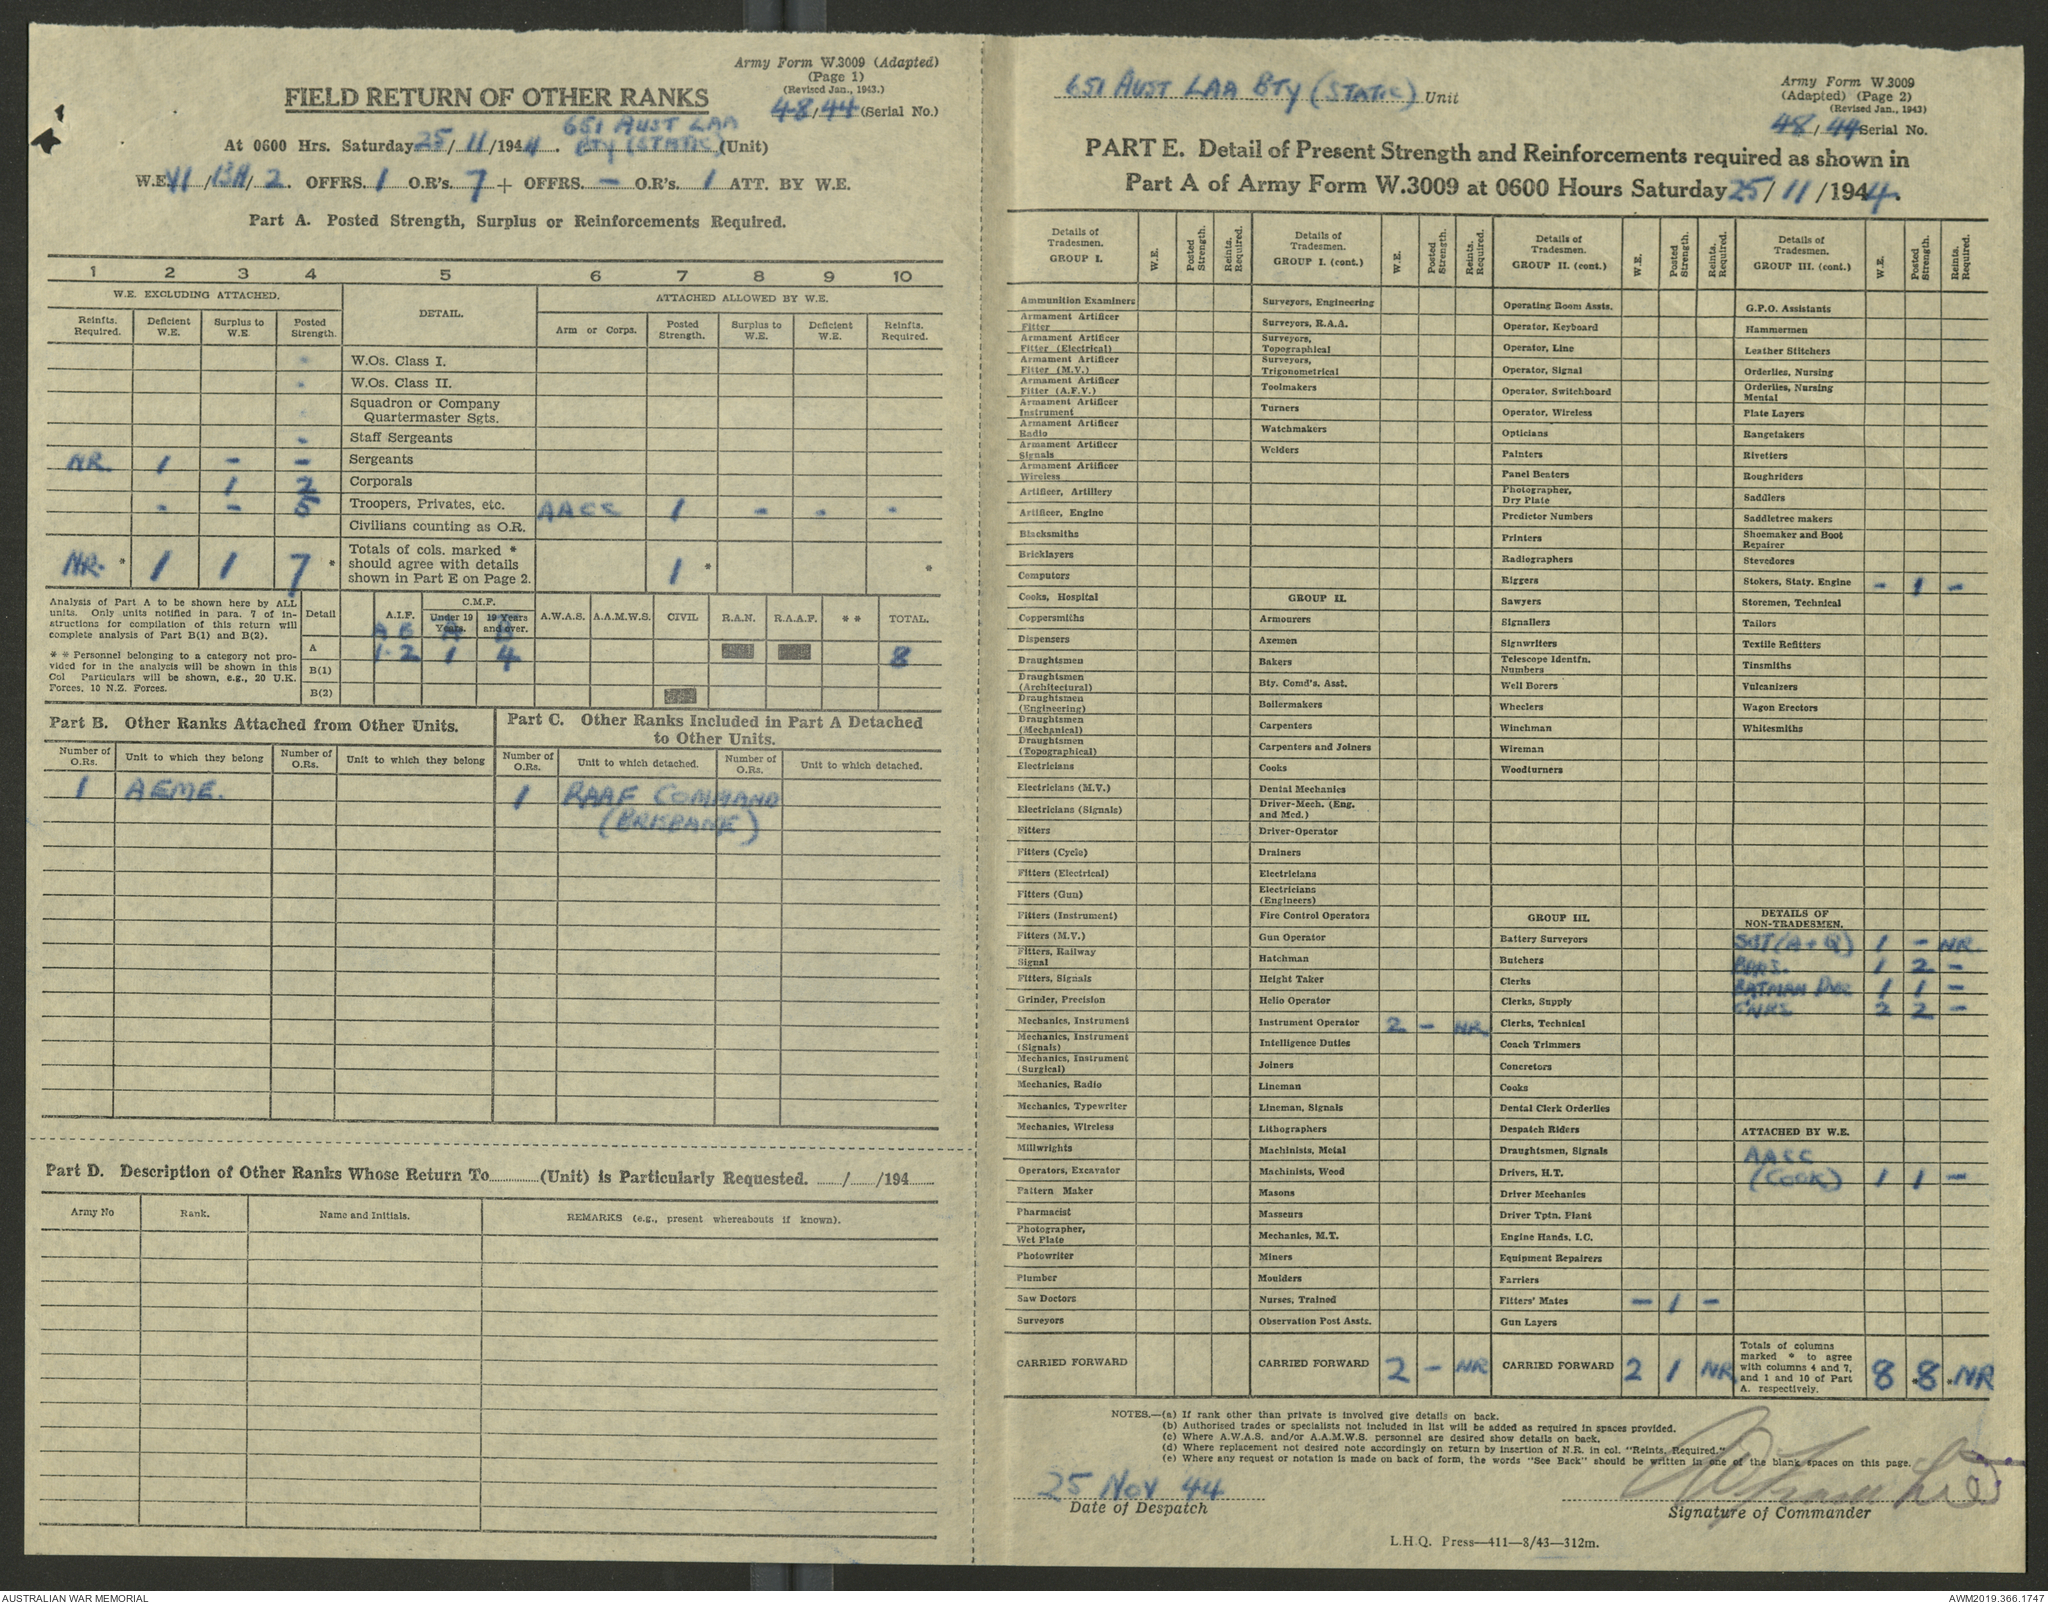 Army Form W.3009 (Adapted)
(Page 1)
(Revised Jan., 1943.)
FIELD RETURN OF OTHER RANKS
48/44 (Serial No.)
At 0600 Hrs. Saturday 25/11/1944. 651 AUST LAA
BTY (STATIC) (Unit)
W.E. VI/13A/2. OFFRS. 1 O.R's. 7 + OFFRS. – O.R's. 1 ATT. BY W.E.
Part A. Posted Strength, Surplus or Reinforcements Required.
1 2 3 4 5 6 7 8 9 10
W.E. EXCLUDING ATTACHED. DETAIL. ATTACHED ALLOWED BY W.E.
Reinfts. Required. Deficient W.E. Surplus to W.E. Posted Strength. Arm or Corps. Posted Strength. Surplus to W.E. Deficient W.E. Reinfts. Required.
- W.Os. Class I.
- W.Os. Class II.
- Squadron or Company
Quartermaster Sgts.
- Staff Sergeants
NR. 1 – – Sergeants
1 2 Corporals
- – 5 Troopers, Privates, etc. AASC 1 – - -
Civilians counting as O.R.
NR. * 1 1 7 * Totals of cols. marked *
should agree with details
shown in Part E on Page 2. 1 * *
Analysis of Part A to be shown here by ALL
units. Only units notified in para. 7 of in-
structions for compilation of this return will
complete analysis of Part B(1) and B(2).
* * Personnel belonging to a category not pro-
vided for in the analysis will be shown in this
Col Particulars will be shown, e.g., 20 U.K.
Forces, 10 N.Z. Forces.
Detail A.I.F. C.M.F. Under 19 Years. 19 Years and over. A.W.A.S. A.A.M.W.S. CIVIL R.A.N. R.A.A.F. * * TOTAL.
A B A B
A 1 2 1 4 8
B(1)
B(2)
Part B. Other Ranks Attached from Other Units.
Number of O.Rs. Unit to which they belong Number of O.Rs. Unit to which they belong
1 AEME.
Part C. Other Ranks Included in Part A Detached
to Other Units.
Number of O.Rs. Unit to which detached. Number of O.Rs. Unit to which detached.
1 RAAF COMMAND
(BRISBANE)
Part D. Description of Other Ranks Whose Return To (Unit) is Particularly Requested. / /194
Army No Rank. Name and Initials. REMARKS (e.g., present whereabouts if known).
651 AUST LAA BTY (STATIC) Unit
Army Form W.3009
(Adapted) (Page 2)
(Revised Jan., 1943)
48/44 Serial No.
PART E. Detail of Present Strength and Reinforcements required as shown in
Part A of Army Form W.3009 at 0600 Hours Saturday 25/11/1944.
Details of Tradesmen. GROUP I. W.E. Posted Strength. Reints. Required.
Ammunition Examiners
Armament Artificer Fitter
Armament Artificer Fitter (Electrical)
Armament Artificer Fitter (M.V.)
Armament Artificer Fitter (A.F.V.)
Armament Artificer Instrument
Armament Artificer Radio
Armament Artificer Signals
Armament Artificer Wireless
Artificer, Artillery
Artificer, Engine
Blacksmiths
Bricklayers
Computors
Cooks, Hospital
Coppersmiths
Dispensers
Draughtsmen
Draughtsmen (Architectural)
Draughtsmen (Engineering)
Draughtsmen (Mechanical)
Draughtsmen (Topographical)
Electricians
Electricians (M.V.)
Electricians (Signals)
Fitters
Fitters (Cycle)
Fitters (Electrical)
Fitters (Gun)
Fitters (Instrument)
Fitters (M.V.)
Fitters, Railway Signal
Fitters, Signals
Grinder, Precision
Mechanics, Instrument
Mechanics, Instrument (Signals)
Mechanics, Instrument (Surgical)
Mechanics, Radio
Mechanics, Typewriter
Mechanics, Wireless
Millwrights
Operators, Excavator
Pattern Maker
Pharmacist
Photographer, Wet Plate
Photowriter
Plumber
Saw Doctors
Surveyors
CARRIED FORWARD
Details of Tradesmen. GROUP I. (cont.) W.E. Posted Strength. Reints. Required.
Surveyors, Engineering
Surveyors, R.A.A.
Surveyors, Topographical
Surveyors, Trigonometrical
Toolmakers
Turners
Watchmakers
Welders
GROUP II.
Armourers
Axemen
Bakers
Bty. Comd's. Asst.
Boilermakers
Carpenters
Carpenters and Joiners
Cooks
Dental Mechanics
Driver-Mech. (Eng. and Med.)
Driver-Operator
Drainers
Electricians
Electricians (Engineers)
Fire Control Operators
Gun Operator
Hatchman
Height Taker
Helio Operator
Instrument Operator 2 – NR
Intelligence Duties
Joiners
Lineman
Lineman, Signals
Lithographers
Machinists, Metal
Machinists, Wood
Masons
Masseurs
Mechanics, M.T.
Miners
Moulders
Nurses, Trained
Observation Post Assts.
CARRIED FORWARD 2 – NR
Details of Tradesmen. GROUP II. (cont.) W.E. Posted Strength. Reints. Required.
Operating Room Assts.
Operator, Keyboard
Operator, Line
Operator, Signal
Operator, Switchboard
Operator, Wireless
Opticians
Painters
Panel Beaters
Photographer, Dry Plate
Predictor Numbers
Printers
Radiographers
Riggers
Sawyers
Signallers
Signwriters
Telescope Identfn. Numbers
Well Borers
Wheelers
Winchman
Wireman
Woodturners
GROUP III.
Battery Surveyors
Butchers
Clerks
Clerks, Supply
Clerks, Technical
Coach Trimmers
Concretors
Cooks
Dental Clerk Orderlies
Despatch Riders
Draughtsmen, Signals
Drivers, H.T.
Driver Mechanics
Driver Tptn. Plant
Engine Hands, I.C.
Equipment Repairers
Farriers
Fitters' Mates – 1 –
Gun Layers
CARRIED FORWARD 2 1 NR
Details of Tradesmen. GROUP III. (cont.) W.E. Posted Strength. Reints. Required.
G.P.O. Assistants
Hammermen
Leather Stitchers
Orderlies, Nursing
Orderlies, Nursing Mental
Plate Layers
Rangetakers
Rivetters
Roughriders
Saddlers
Saddletree makers
Shoemaker and Boot Repairer
Stevedores
Stokers, Staty. Engine – 1 –
Storemen, Technical
Tailors
Textile Refitters
Tinsmiths
Vulcanizers
Wagon Erectors
Whitesmiths
DETAILS OF NON-TRADESMEN.
SGT (A + Q) 1 – NR
BDRS. 1 2 –
BATMAN DVR 1 1 –
GNRS 2 2 –
ATTACHED BY W.E.
AASC
(COOK) 1 1 –
Totals of columns marked * to agree with columns 4 and 7, and 1 and 10 of Part A. respectively. 8 *8 *NR
NOTES.—(a) If rank other than private is involved give details on back.
(b) Authorised trades or specialists not included in list will be added as required in spaces provided.
(c) Where A.W.A.S. and/or A.A.M.W.S. personnel are desired show details on back.
(d) Where replacement not desired note accordingly on return by insertion of N.R. in col. "Reints. Required."
(e) Where any request or notation is made on back of form, the words "See Back" should be written in one of the blank spaces on this page.
25 Nov 44
Date of Despatch
Signature of Commander
L.H.Q. Press—411—8/43—312m.
AUSTRALIAN WAR MEMORIAL
AWM2019.366.1747